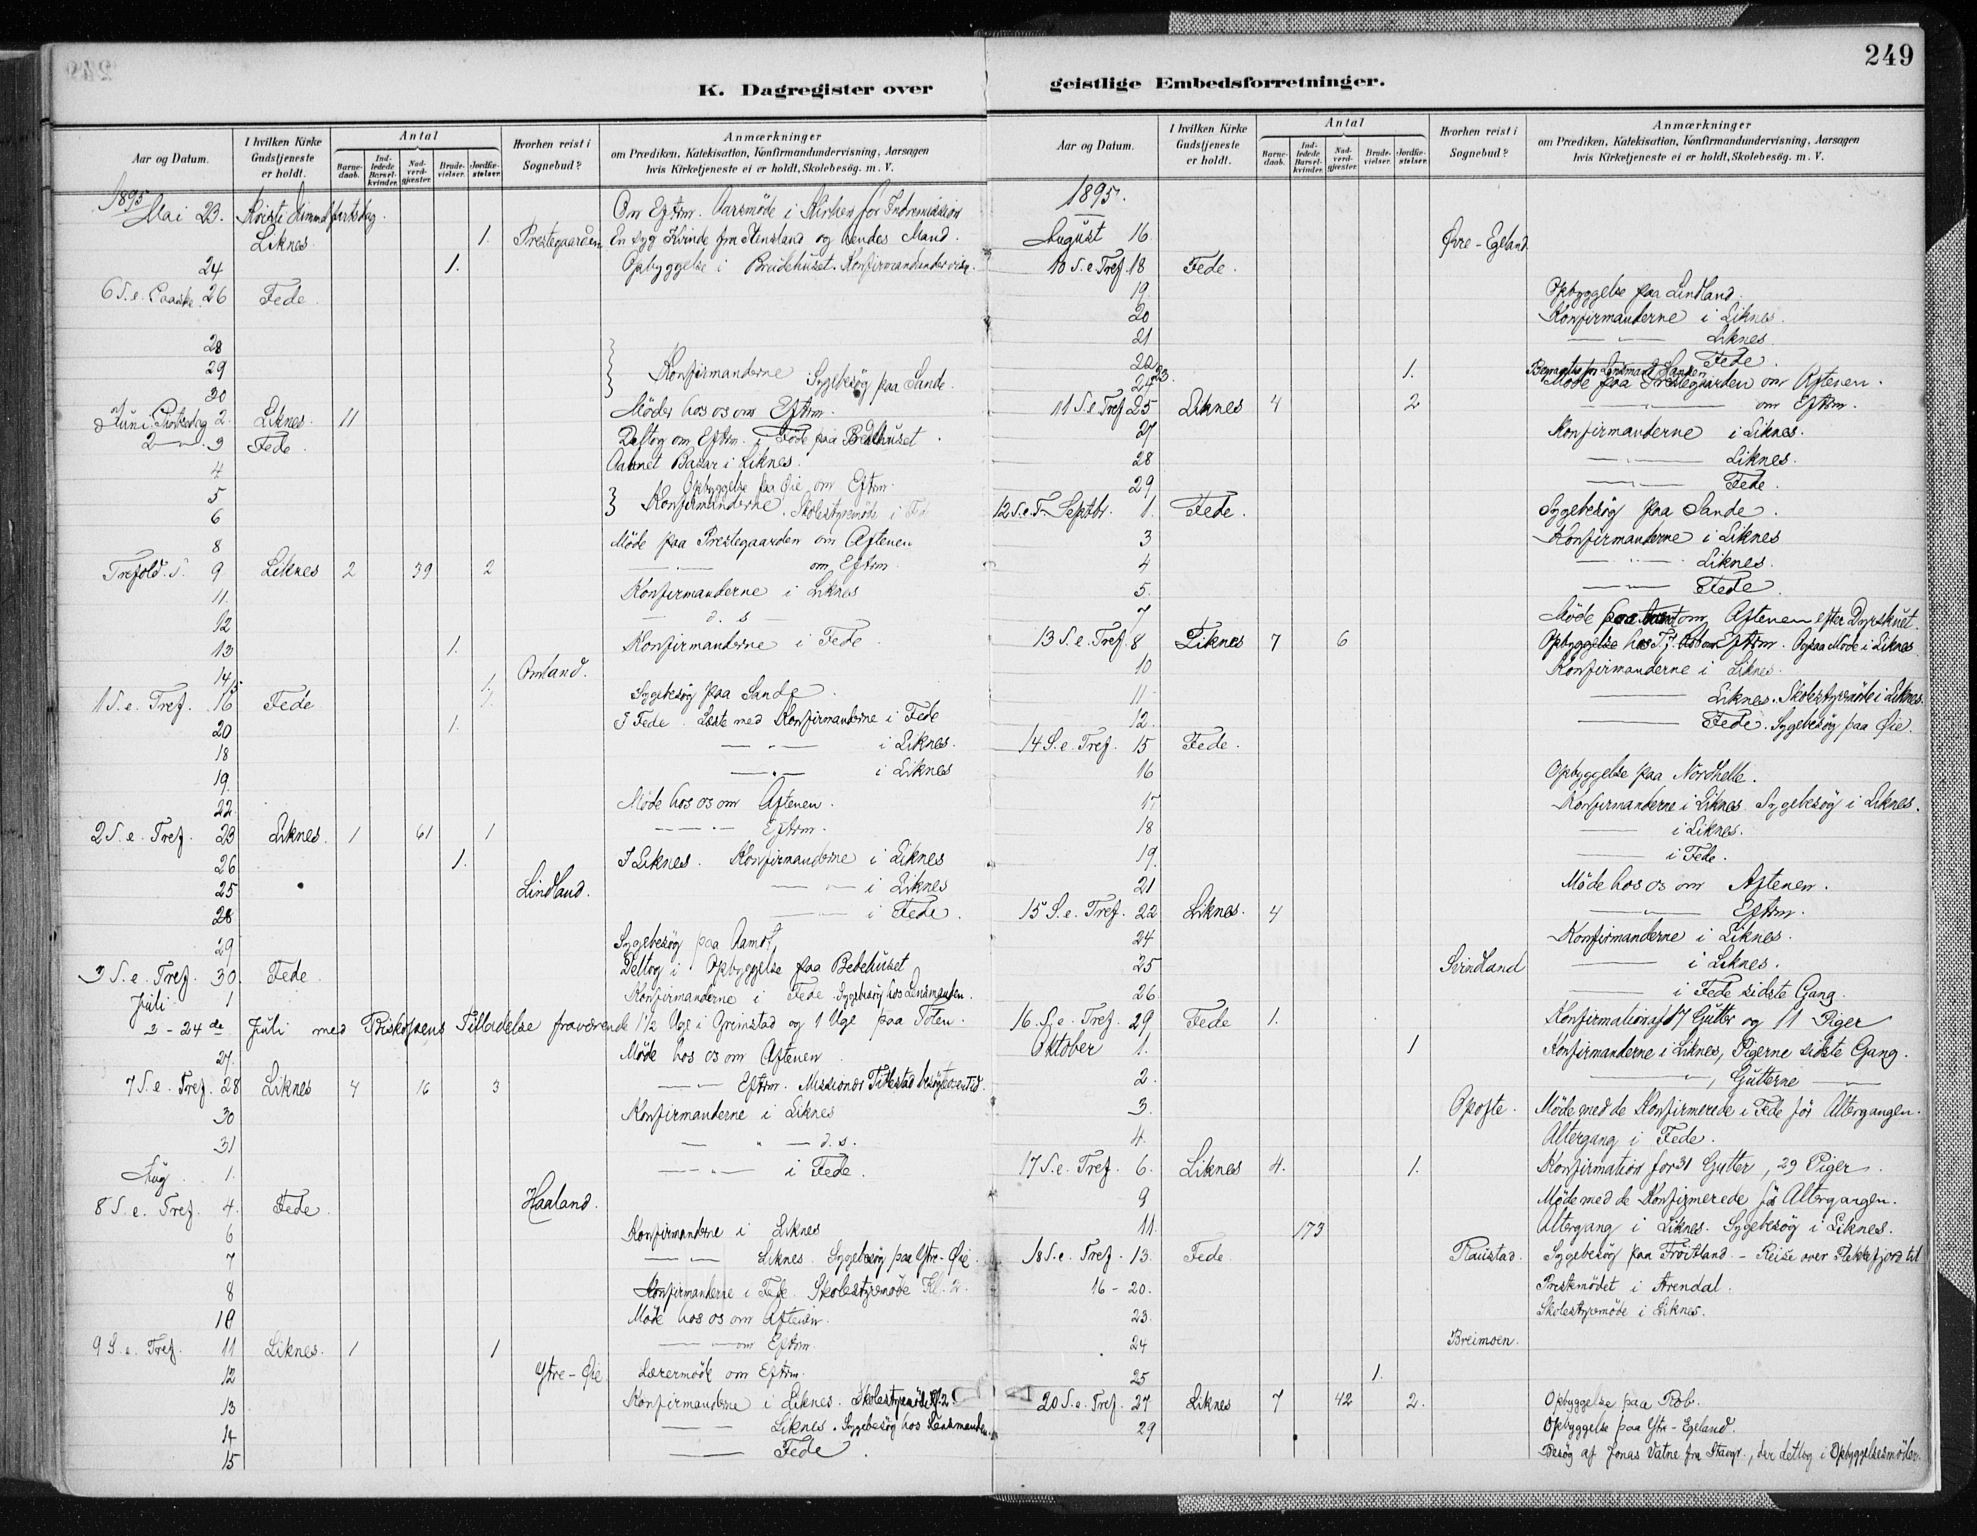 249
K. Dagregister over geistlige Embedsforretninger.
Aar og Datum.
I hvilken Kirke Gudstjeneste er holdt.
Antal
Barnedaab.
Indledede Barselkvinder.
Nadverdgjæster.
Brudevielser.
Jordfæstelser.
Hvorhen reist i Sognebud?
Anmærkninger
om Prædiken, Katekisation, Konfirmandundervisning, Aarsagen
hvis Kirketjeneste ei er holdt, Skolebesög. m. V.
1895
Mai 23. Kristi Himmelfartsdag. Om Eftrm. Aarsmöde i Kirken for Indremission
Liknes. 1. Prestegaarden En syg Kvinde fra Stensland og hendes Mand.
24 1. Opbyggelse i Bedehuset. Konfirmandundervisn.
6 S. e. Paaske 26 Fede.
28
29 Konfirmanderne Sygebesög paa Sande.
30
Juni. Pintsedag 2. Liknes. 11 Möde hos os om Eftrm.
2 3 Fede. Deltog om Eftrm. i paa Bedehuset.
4 Aabnet Basar i Liknes.
5 Opbyggelse paa Øie om Eftrm.
6 Konfirmanderne. Skolestyremöde i
8 Möde paa Prestegaarden om Aftenen
Trefold. S. 9 Liknes 2 39 2 om Eftrm.
11. Konfirmanderne i Liknes
12 d. s.
13 1. Konfirmanderne i Fede
14. Omland.
1 S. e. Tref. 16 Fede Sygebesög paa Sande
20 1. I Fede Læste med Konfirmanderne i Fede
18 i Liknes.
19. i Liknes
22. Möde hos os om Aftenen.
2 S. e. Tref. 23 Liknes. 1 61 1 Eftrm.
26 1. I Liknes. Konfirmanderne i Liknes
25 Lindland. i Liknes
28 i Fede.
29 Sygebesög paa Aamot
3 S. e. Tref. 30. Fede. Deltog i Opbyggelse paa Bedehuset
Juli 1 Konfirmanderne i Fede. Sygebesög hos Lensmanden.
2 - 24de Juli med Biskopens Tilladelse fraværende 1 1/2 Uge i Grimstad og 1 Uge paa Toten.
27. Möde hos os om Aftenen
7 S. e. Tref. 28 Liknes 4 16 3 Eftrm. Missionær besögte
30 Konfirmanderne i Liknes
31 d. s.
Aug. 1. i Fede.
8 S. e. Tref. 4. Fede. Haaland.
6 Konfirmanderne i Liknes
7 Liknes. Sygebesög paa Ytre-Øie.
8 Konfirmanderne i Fede. Skolestyremöde Kl. 2.
10 Möde hos os om Aftenen.
9 S. e. Tref. 11 Liknes. 1 1 om Eftrm.
12 Ytre-Øie Lærermöde om Eftrm.
13 Konfirmanderne i Liknes. Skolestyremöde Kl. 2
14 Liknes. Sygebesög hos Lensmanden.
15 Fede.
Aar og Datum.
I hvilken Kirke Gudstjeneste er holdt.
Antal
Barnedaab.
Indledede Barselkvinder.
Nadverdgjæster.
Brudevielser.
Jordfæstelser.
Hvorhen reist i Sognebud?
Anmærkninger
om Prædiken, Katekisation, Konfirmandundervisning, Aarsagen
hvis Kirketjeneste ei er holdt, Skolebesög. m. V.
1895.
August 16 Øvre-Egeland.
10 S. e. Tref. 18 Fede.
19. Opbyggelse paa Lindland.
20 Konfirmanderne i Liknes.
21 Liknes.
22 Fede.
23. 1. Begravelse for Lensmand Hansen
24 Möde paa Prestegaarden om Aftenen.
11 S. e. Tref. 25 Liknes 4 2 om Eftrm.
27 Konfirmanderne i Liknes.
28 Liknes.
29 Fede.
12 S. e. T. Septbr. 1. Fede. Sygebesög paa Sande.
3 Konfirmanderne i Liknes
4 Liknes.
5. Fede.
7 Möde om Aftenen efter Dyrskuet.
13 S. e. Tref. 8 Liknes 7 6 Opbyggelse Eftrm. Ogsaa Möde i Liknes
10 Konfirmanderne i Liknes.
11. Liknes. Skolestyremöde i Liknes.
12. Fede. Sygebesög paa Øie.
14 S. e. Tref. 15 Fede.
16 Opbyggelse paa Nordhelle.
17 Konfirmanderne i Liknes. Sygebesög i Liknes.
18 i Liknes.
19. i Fede.
21 Möde hos os om Aftenen.
15 S. e. Tref. 22 Liknes. 4 Eftrm.
24 Konfirmanderne i Liknes.
25 Svindland i Liknes.
26 i Fede sidste Gang.
16. S. e. Tref. 29 Fede 1. Konfirmation af 17 Gutter og 11 Piger
Oktober 1. 1 Konfirmanderne i Liknes, Pigerne sidste Gang.
2. , Gutterne
3. Opofte. Möde med de Konfirmerede i Fede för Altergangen.
4. Altergang i Fede.
17 S. e. Tref. 6. Liknes 4. 1. Konfirmation for 31 Gutter, 29 Piger.
9 Möde med de Konfirmerede för Altergangen.
11. 173 Altergang i Liknes. Sygebesög i Liknes.
18 S. e. Tref. 13. Fede Raustad. Sygebesög paa Fröitland - Reise over Flekkefjord til
16 - 20. Prestemödet i Arendal.
23. Skolestyremöde i Liknes.
24 Breimoen.
25 1.
20 S. e. Tref. 27. Liknes 7 42 2. Opbyggelse paa Rob.
29 Opbyggelse paa Ytr-Egeland.
Besög af Jonas Vatne fra Stavgr., der deltog i Opbyggelsesmöder.